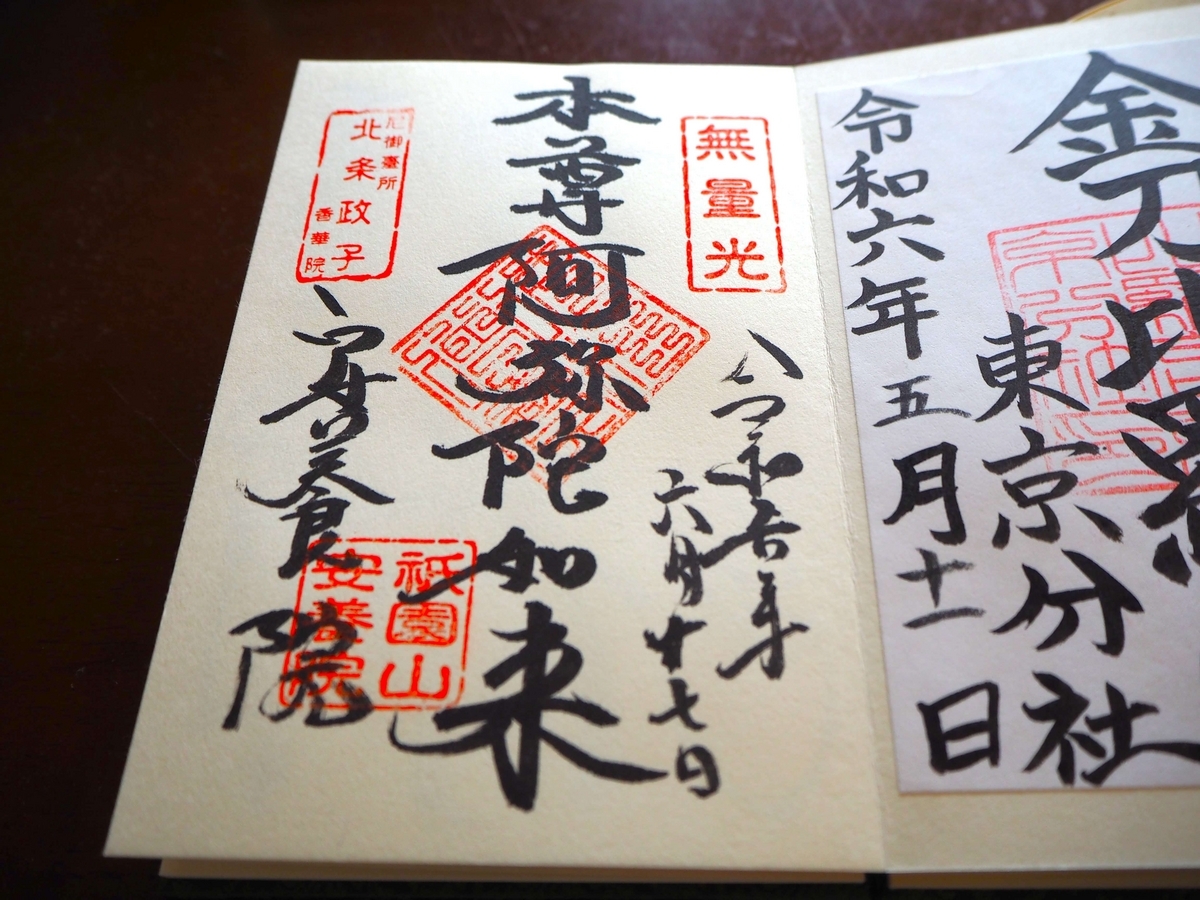 金刀比羅
東京分社
令和六年五月十一日
無量光
令和六年
六月十七日
本尊阿弥陀如来
尼御臺所
北条政子
香華院
安養院
祇園山
安養院